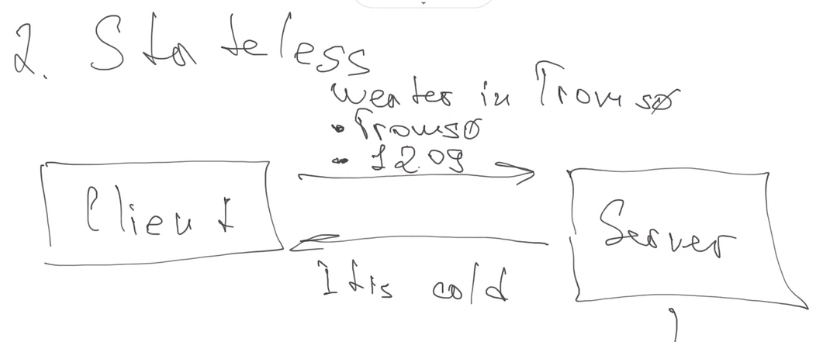 2. Stateless
Weater in Tromsø
• Tromsø
- 12.09
Client
Server
It is cold